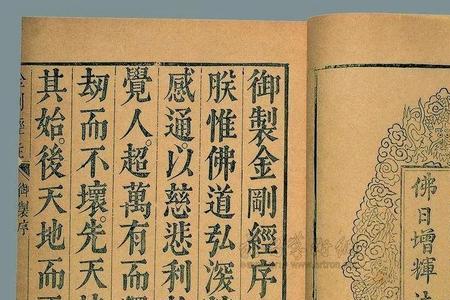 佛日增輝
御製金剛經序
朕惟佛道弘深
感通。以慈悲利
覺人。超萬有而
劫而不壞。先天
其始。後天地而
御製序